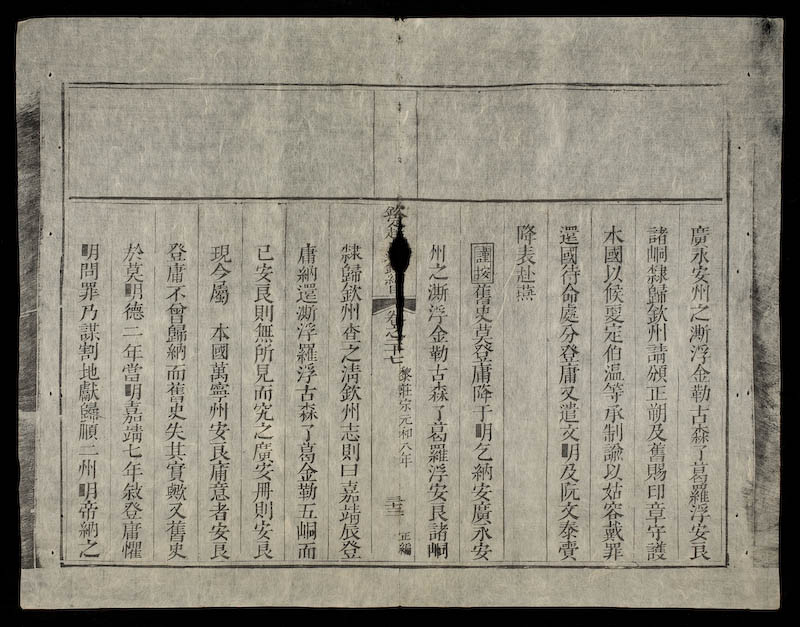 廣永安州之澌浮金勒古森了葛羅浮安良
諸峒隸歸欽州請頒正朔及舊賜印章守護
本國以候更定伯温等承制諭以姑容戴罪
還國待命處分登庸又遣文明及阮文泰賫
降表赴燕
謹按舊史莫登庸降于明乞納安廣永安
州之澌浮金勒古森了葛羅浮安良諸峒
欽定
卷之二十七
黎莊宗元和八年
三十三
正編
隸歸欽州查之淸欽州志則曰嘉靖辰登
庸納還澌浮羅浮古森了葛金勒五峒而
已安良則無所見而究之廣安册則安良
現今屬 本國萬寧州安良庸意者安良
登庸不曾歸納而舊史失其實歟又舊史
於莫明德二年當明嘉靖七年敘登庸懼
明問罪乃謀割地獻歸順二州明帝納之